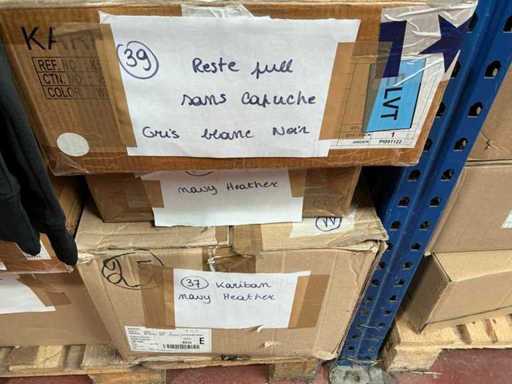 KAR
REF. NO.
CTN. NO.
COLOR
39
Reste pull
sans Capuche
Gris blanc Noir
LVT
1
navy Heather
37 Kariban
navy Heather
E